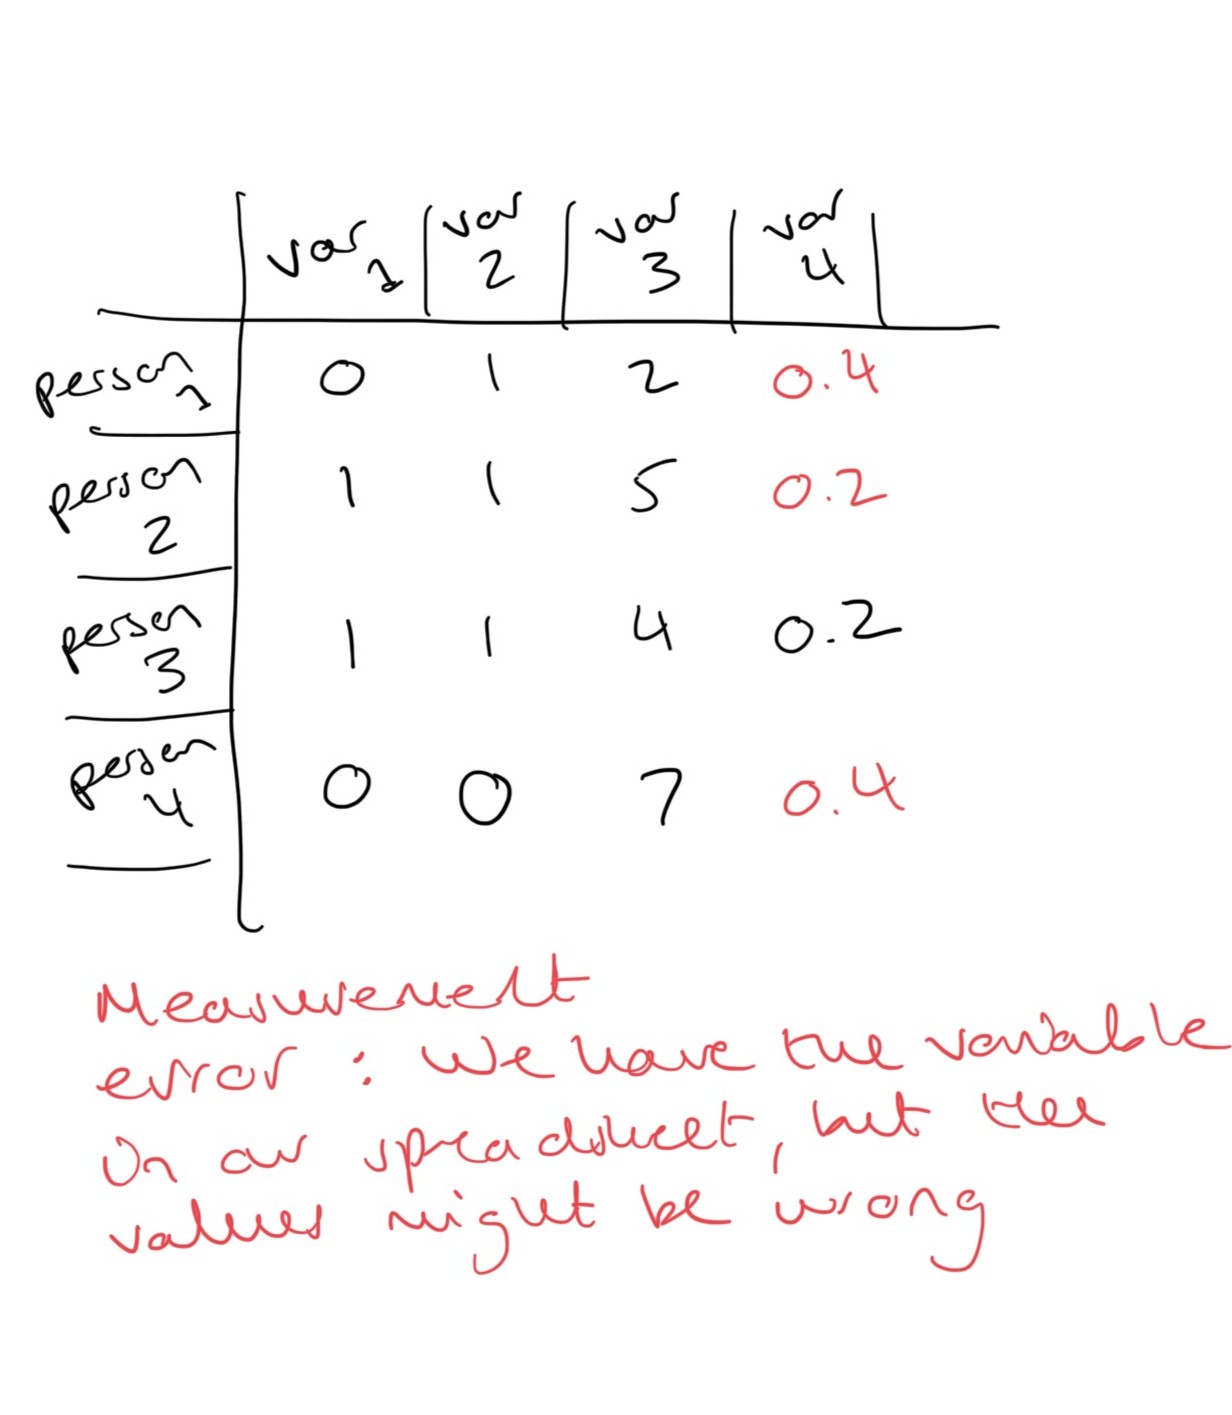 var 1 var 2 var 3 var 4
person 1 0 1 2 0.4
person 2 1 1 5 0.2
person 3 1 1 4 0.2
person 4 0 0 7 0.4
Measurement
error : We have the variable
in our spreadsheet, but the
values might be wrong